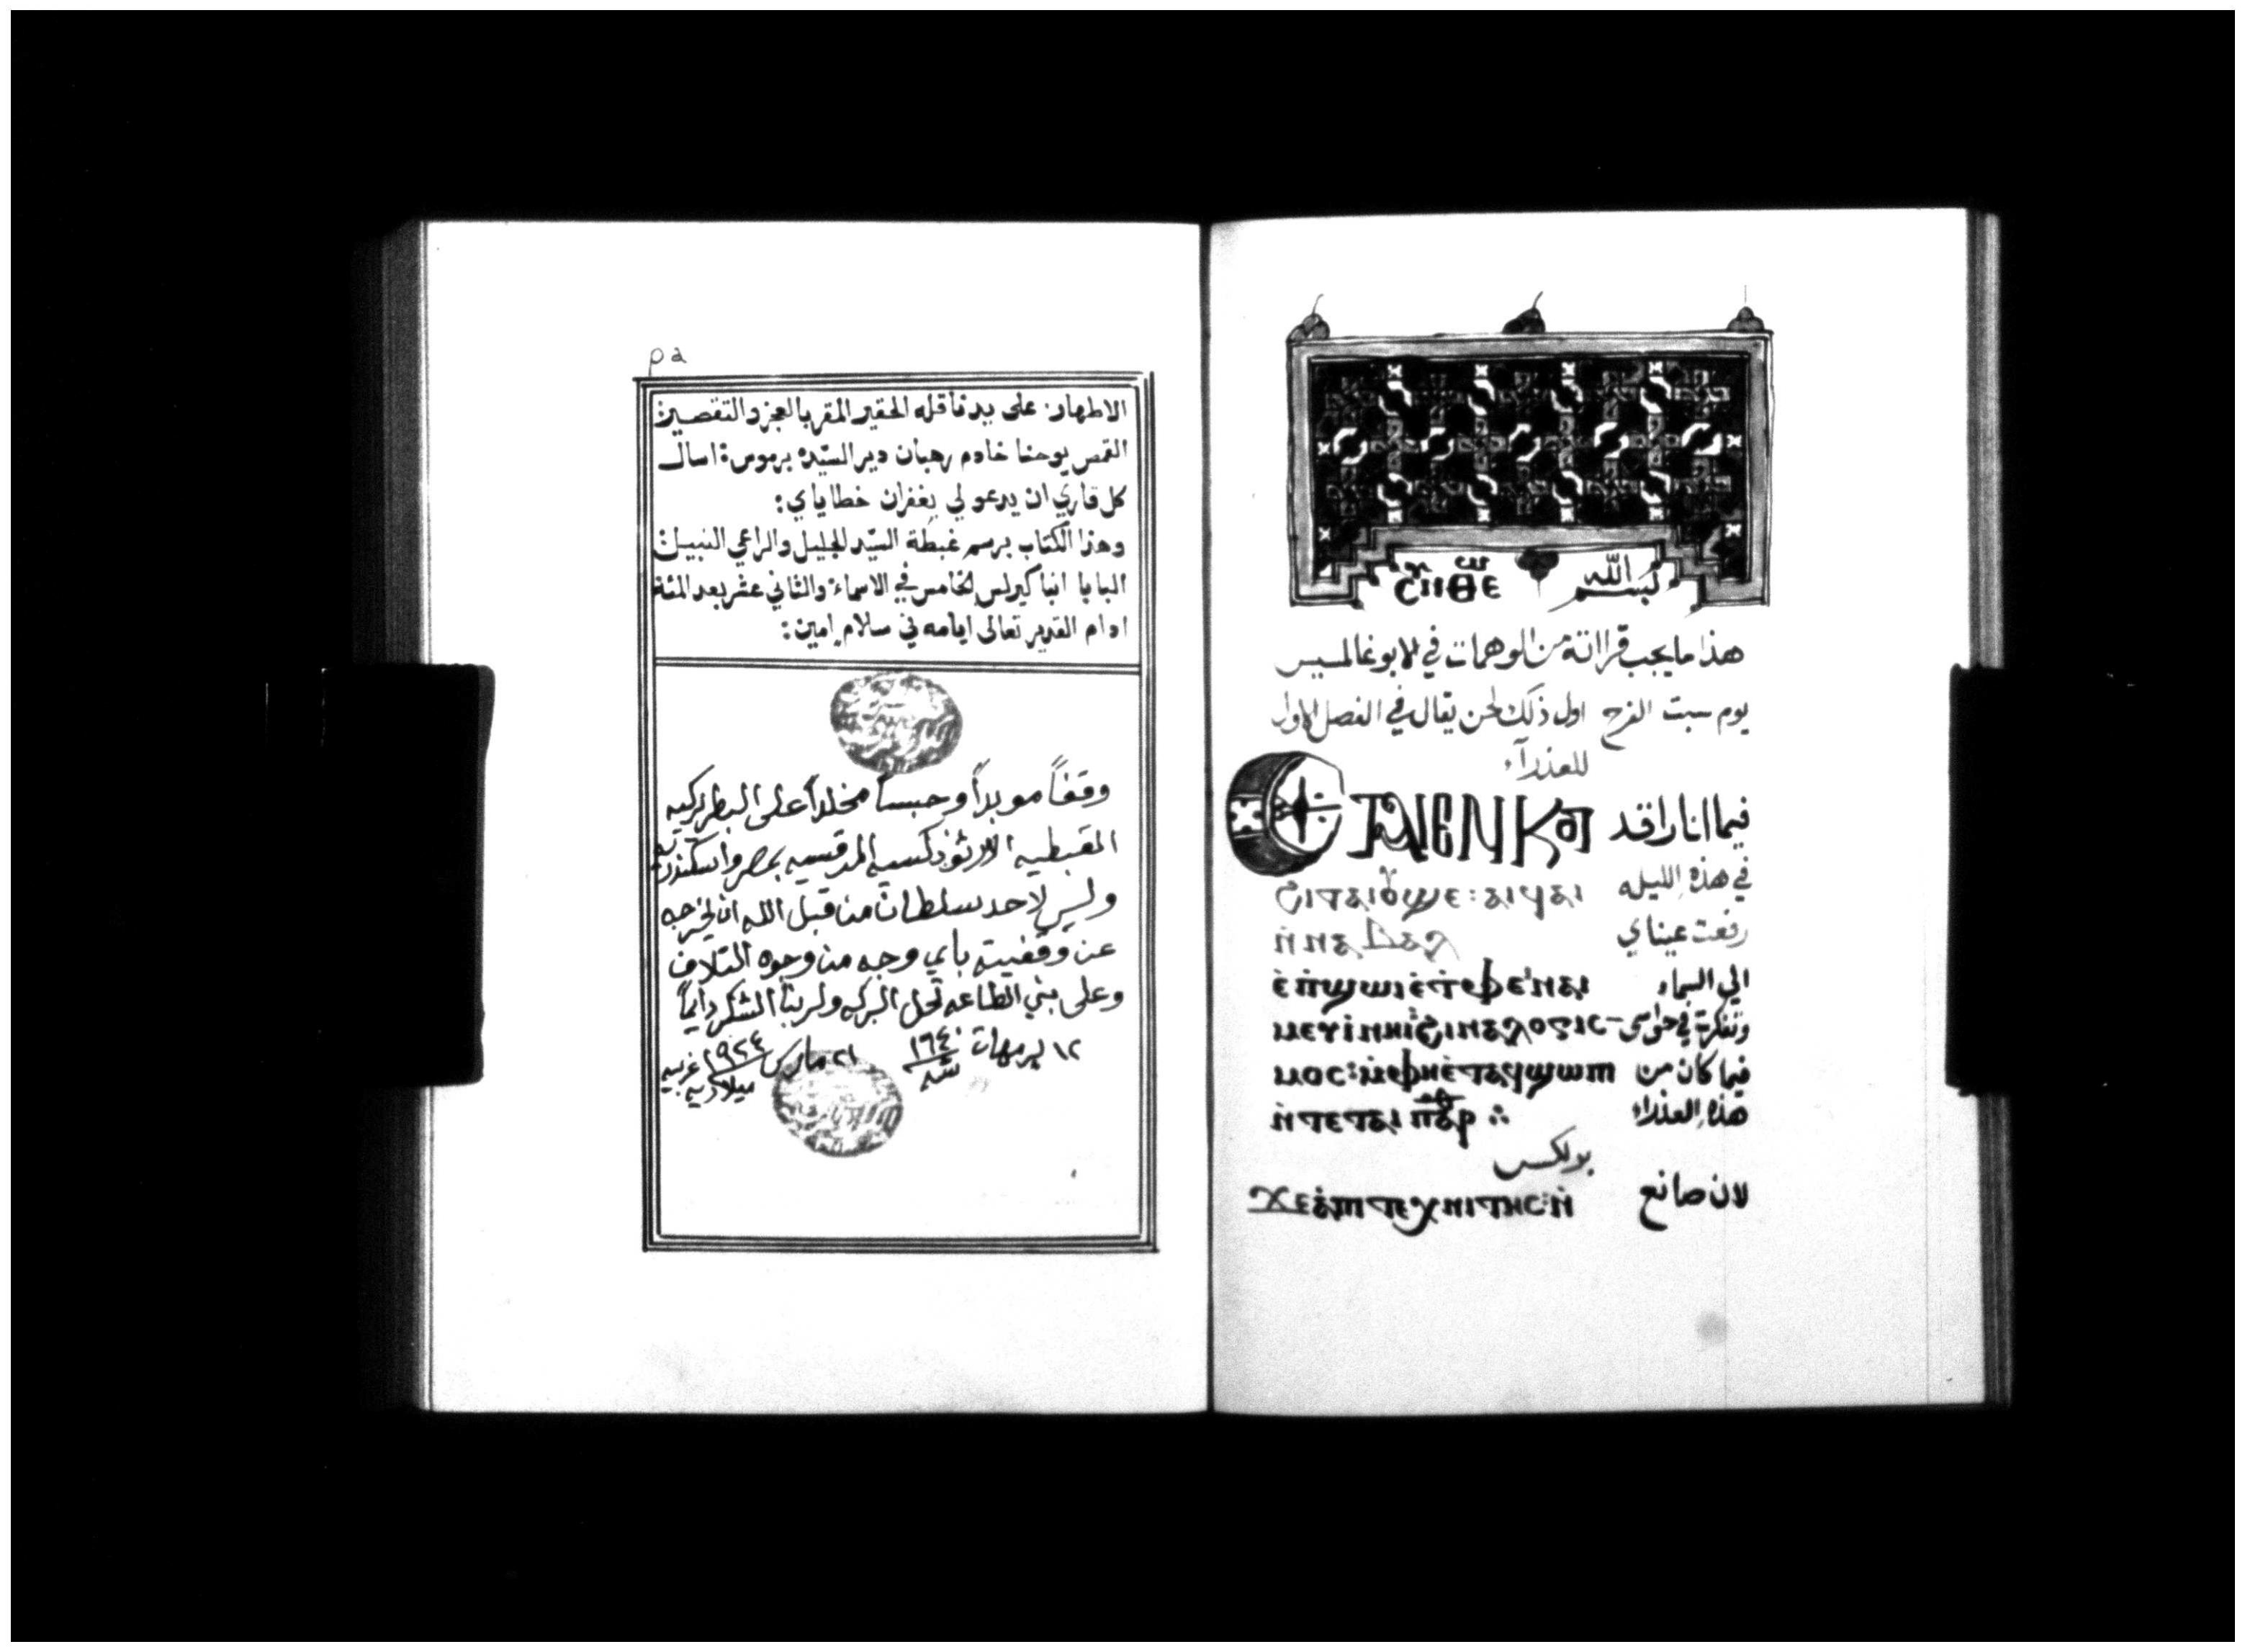 ⲣⲁ
الاطهار: على يد ناقله الحقير المقر بالعجز والتقصير:
القمص يوحنا خادم رهبان دير السيّده برموس: اسال
كل قاري ان يدعو لي بغفران خطاياي:
وهذا الكتاب برسم غبطة السيّد الجليل والراعي النبيل:
البابا انبا كيرلس الخامس في الاسماء والثاني عشر بعد المئة
ادام القدير تعالى ايامه في سلام امين:
وقفاً موبداً وحبساً مخلداً على البطريركيه
القبطيه الارثوذكسيه المرقسيه بمصر واسكندريه
وليس لاحد سلطان من قبل الله ان يخرجه
عن وقفيته باي وجه من وجوه التلاف
وعلى بني الطاعه تحل البركه ولربنا الشكر دايماً
١٢ برمهات ١٦٤٠ سنه ٢١ مارس ١٩٢٤ غربيه ميلاديه
ⲥⲩⲛ ⲑⲉⲱ بسم الله
هذا ما يجب قراته من الوهمات في لابوغالمسيس
يوم سبت الفرح اول ذلك لحن يقال في الفصل الاول
للعذرآء
ⲉⲧⲁⲓⲉⲛⲕⲟⲧ فيما انا راقد
ϧⲓⲧⲁⲓⲟⲩϣⲉ: ⲁⲓϥⲁⲓ في هذه الليله
ⲛ̀ⲛⲁⲃⲁⲗ رفعت عيناي
ⲉ̀ⲡϣⲱⲓⲉ̀ⲧⲫⲉ ⲛⲁⲓ الي السماء
ⲙⲉⲩⲓ̀ⲛⲏⲓϧⲓⲛⲁⲗⲟⲅⲓⲥ وتفكرت في حواسي
ⲙⲟⲥ: ⲙ̀ⲫⲏⲉ̀ⲧⲁϥϣⲱⲡ فيما كان من
ⲛ̀ⲧⲉⲧⲁⲓⲡⲁⲣ هذه العذراء
بولكس
ϫⲉⲁ̀ⲡⲧⲉⲭⲛⲓⲧⲏⲥ: ⲛ̀ لان صانع